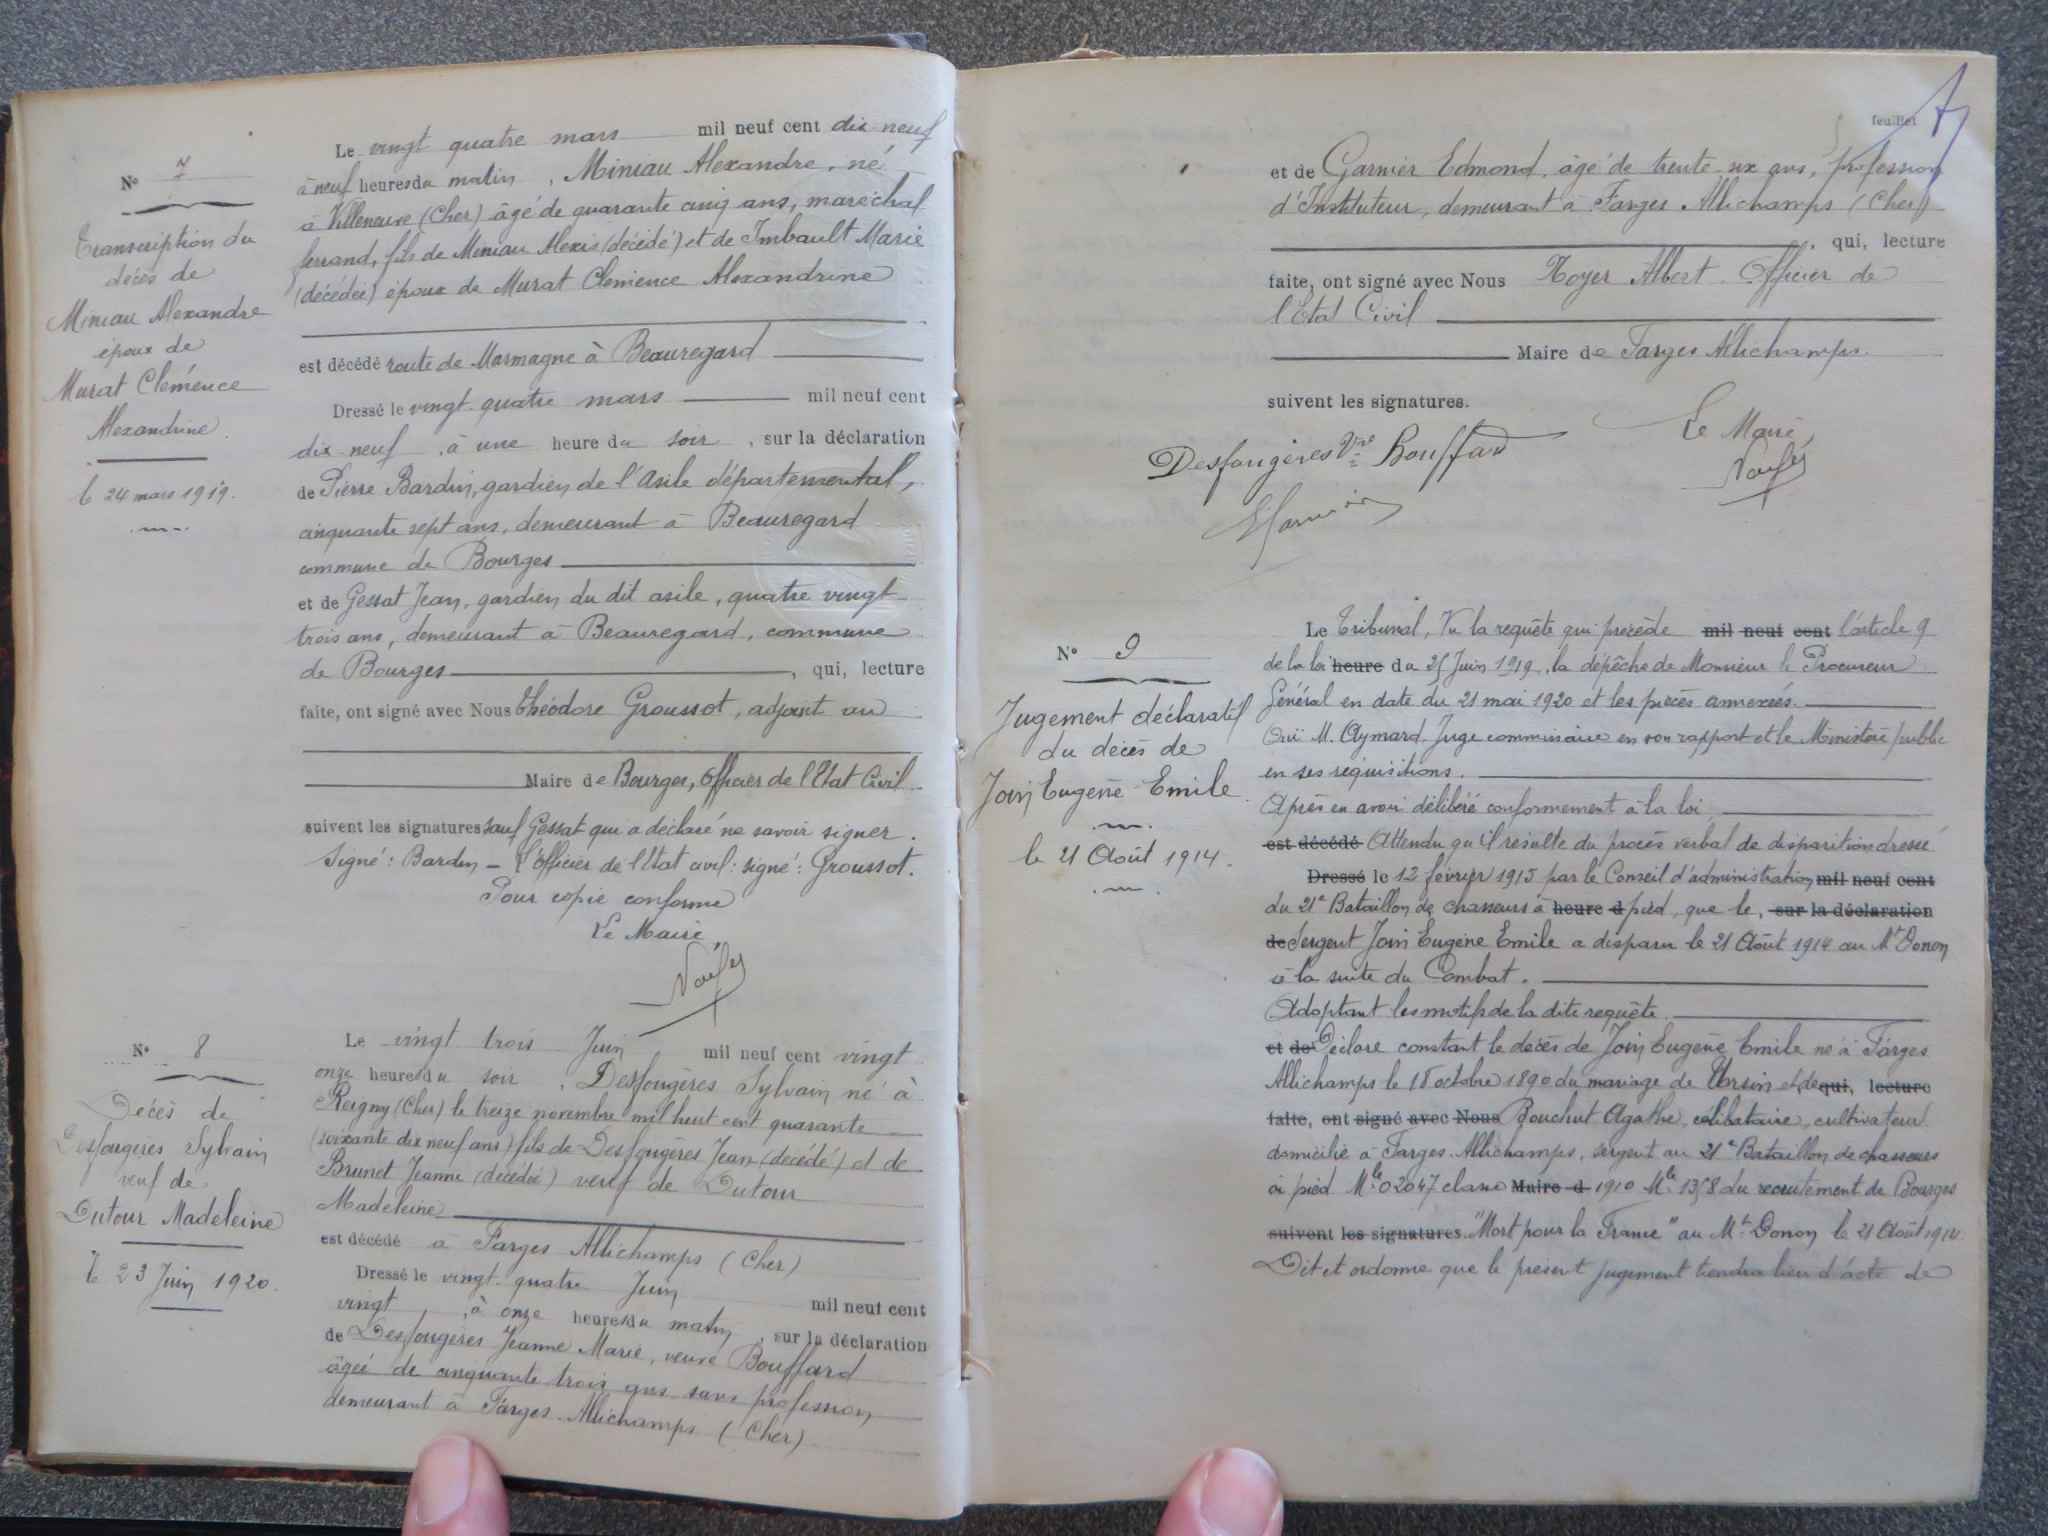 N° 7
Transcription du
décès de
Miniau Alexandre
époux de
Murat Clémence
Alexandrine
le 24 mars 1919.
Le vingt quatre mars mil neuf cent dix neuf
à neuf heures du matin, Miniau Alexandre, né
à Villeneuve (Cher) âgé de quarante cinq ans, maréchal
ferrand, fils de Miniau Alexis (décédé) et de Imbault Marie
(décédée) époux de Murat Clémence Alexandrine
est décédé route de Marmagne à Beauregard
Dressé le vingt quatre mars mil neuf cent
dix neuf, à une heure du soir, sur la déclaration
de Pierre Bardin, gardien de l'Asile départemental,
cinquante sept ans, demeurant à Beauregard
commune de Bourges
et de Gessat Jean, gardien du dit asile, quatre vingt
trois ans, demeurant à Beauregard, commune
de Bourges, qui, lecture
faite, ont signé avec Nous Théodore Groussot, adjoint au
Maire de Bourges, Officier de l'Etat Civil
suivent les signatures sauf Gessat qui a déclaré ne savoir signer.
Signé: Bardin – L'officier de l'Etat civil: signé: Groussot.
Pour copie conforme
Le Maire,
N° 8
Décès de
Desfougères Sylvain
veuf de
Dutour Madeleine
le 23 Juin 1920.
Le vingt trois Juin mil neuf cent vingt
onze heures du soir, Desfougères Sylvain né à
Reigny (Cher) le treize novembre mil huit cent quarante
(soixante dix neuf ans) fils de Desfougères Jean (décédé) et de
Brunet Jeanne (décédée) veuf de Dutour
Madeleine
est décédé à Farges Allichamps (Cher)
Dressé le vingt quatre Juin mil neuf cent
vingt, à onze heures du matin, sur la déclaration
de Desfougères Jeanne Marie, veuve Bouffard
âgée de cinquante trois ans sans profession
demeurant à Farges-Allichamps (Cher)
feuillet
et de Garnier Edmond, âgé de trente six ans, profession
d'Instituteur, demeurant à Farges Allichamps (Cher)
, qui, lecture
faite, ont signé avec Nous Royer Albert Officier de
l'Etat Civil
Maire de Farges Allichamps.
suivent les signatures.
Desfougères Vve Bouffard
Le Maire,
N° 9
Jugement déclaratif
du décès de
Join Eugène Emile
le 21 Août 1914.
Le Tribunal, Vu la requête qui précède mil neuf cent l'article 9
de la loi heure du 25 Juin 1919, la dépêche de Monsieur le Procureur
Général en date du 21 mai 1920 et les pièces annexées.
Ouï M. Aymard Juge commissaire en son rapport et le Ministère public
en ses réquisitions.
Après en avoir délibéré conformement à la loi
est décédé Attendu qu'il résulte du procès verbal de disparition dressé
Dressé le 12 février 1915 par le Conseil d'administration mil neuf cent
du 21e Bataillon de chasseurs à heure d pied, que le, sur la déclaration
de Sergent Join Eugène Emile a disparu le 21 Août 1914 au Mt Donon
à la suite du Combat.
Adoptant les motifs de la dite requête.
et de Déclare constant le décès de Join Eugène Emile né à Farges
Allichamps le 18 octobre 1890 du mariage de Ursin et de qui, lecture
faite, ont signé avec Nous Bouchut Agathe, célibataire, cultivateur
domicilié à Farges-Allichamps, sergent au 21e Bataillon de chasseurs
à pied Mle 02047 classe Maire d 1910 Mle 1358 du recrutement de Bourges
suivent les signatures. "Mort pour la France" au Mt Donon le 21 Août 1914
Dit et ordonne que le présent jugement tiendra lieu d'acte de